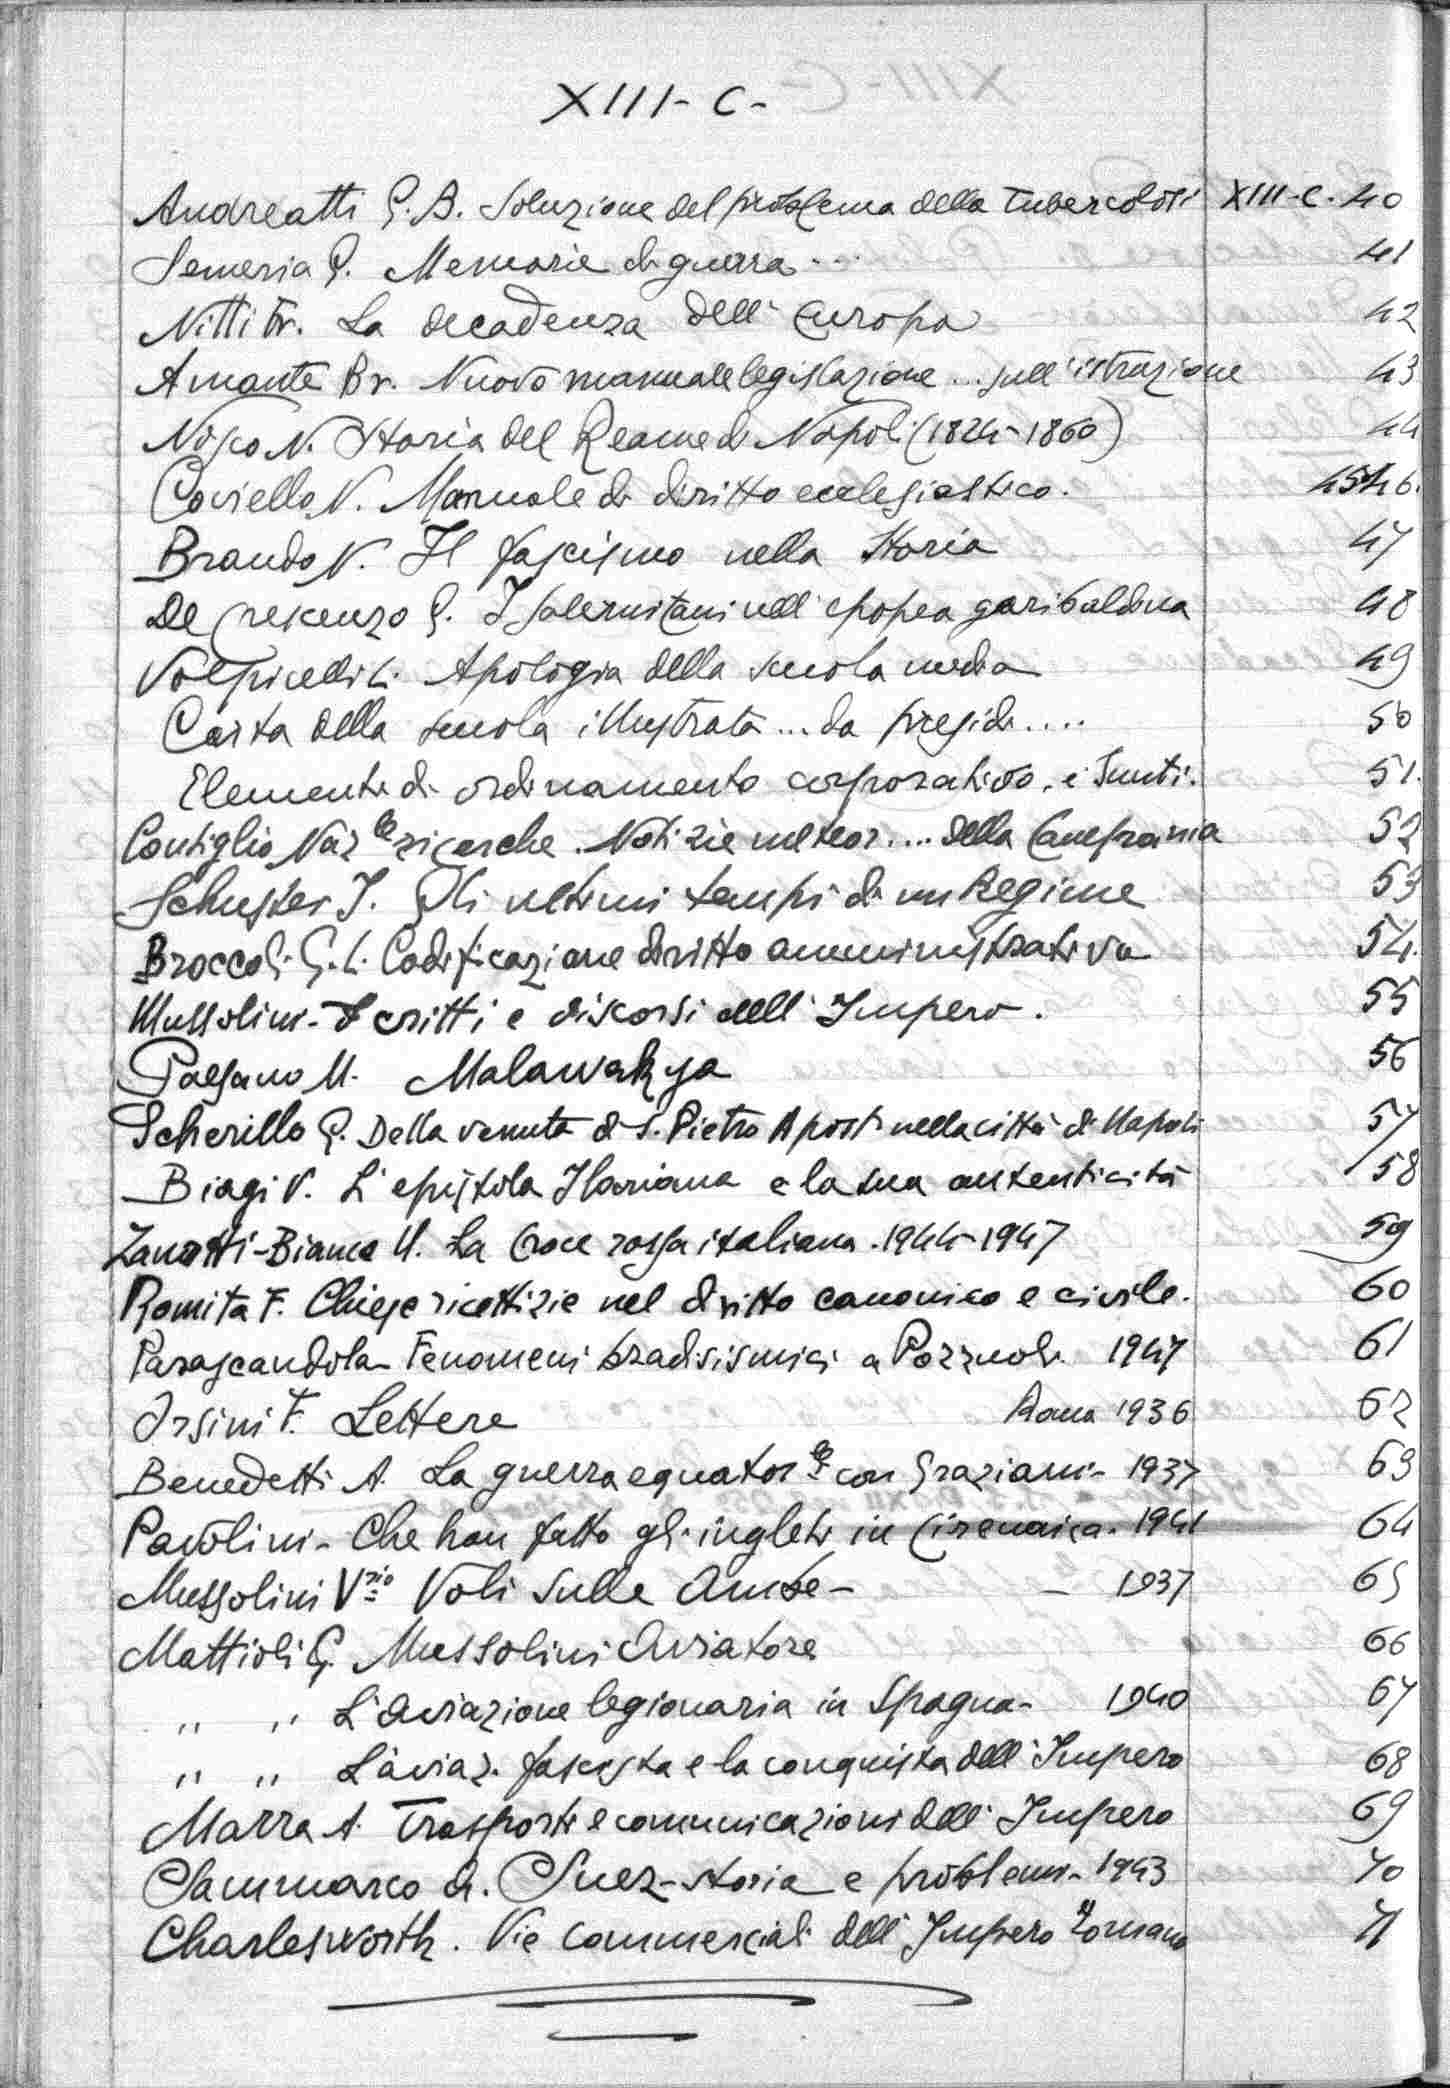 XIII - C -
Andreatti G.B. Soluzione del problema della Tubercolosi XIII-C. 40
Semeria G. Memorie di guerra ... 41
Nitti Fr. La decadenza dell'Europa 42
Amante Br. Nuovo manuale legislazione ... sull'istruzione 43
Nisco N. Storia del Reame di Napoli (1824-1860) 44
Coviello N. Manuale di diritto ecclesiastico. 45 46.
Brando N. Il fascismo nella Storia 47
De Crescenzo G. I Salernitani nell'epopea garibaldina 48
Volpicelli L. Apologia della scuola media 49
Carta della scuola illustrata ... da presidi .... 50
Elementi di ordinamento corporativo. 51.
Consiglio Naz le ricerche. Notizie meteor .... della Campania 52
Schuster I. Gli ultimi tempi di un Regime 53
Broccoli G.L. Codificazione diritto amministrativo 54.
Mussolini - Scritti e discorsi dell'Impero. 55
Palgano M. Malawakya 56
Scherillo G. Della venuta di S. Pietro Apost. nella città di Napoli 57
Biagi V. L'epistola Ilariana e la sua autenticità 58
Zanotti-Bianco U. La Croce rossa italiana. 1944-1947 59
Romita F. Chiese ricettizie nel diritto canonico e civile. 60
Parascandola Fenomeni bradisismici a Pozzuoli 1947 61
Orsini F. Lettere Roma 1936 62
Benedetti A. La guerra equator le con Graziani - 1937 63
Pavolini - Che han fatto gli inglesi in Cirenaica. 1941 64
Mussolini V rio Voli sulle Ambe - - 1937 65
Mattioli G. Mussolini Aviatore 66
" " L'aviazione legionaria in Spagna - 1940 67
" " L'aviaz. fascista e la conquista dell'Impero 68
Marra A. Trasporti e comunicazioni dell'Impero 69
Sammarco A. Suez - storia e problemi - 1943 70
Charlesworth. Vie commerciali dell'Impero romano 71